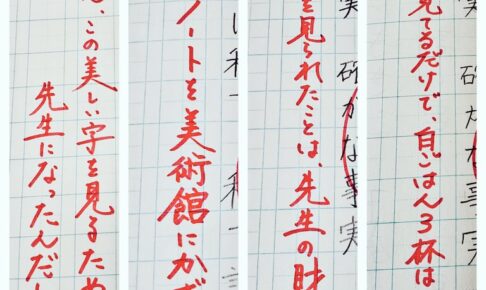 、この美しい字を見るため
先生になったんだ
ノートを美術館にかざ
確かな事実
を見られたことは、先生の財
確かな事実
見てるだけで、白ごはん3杯は